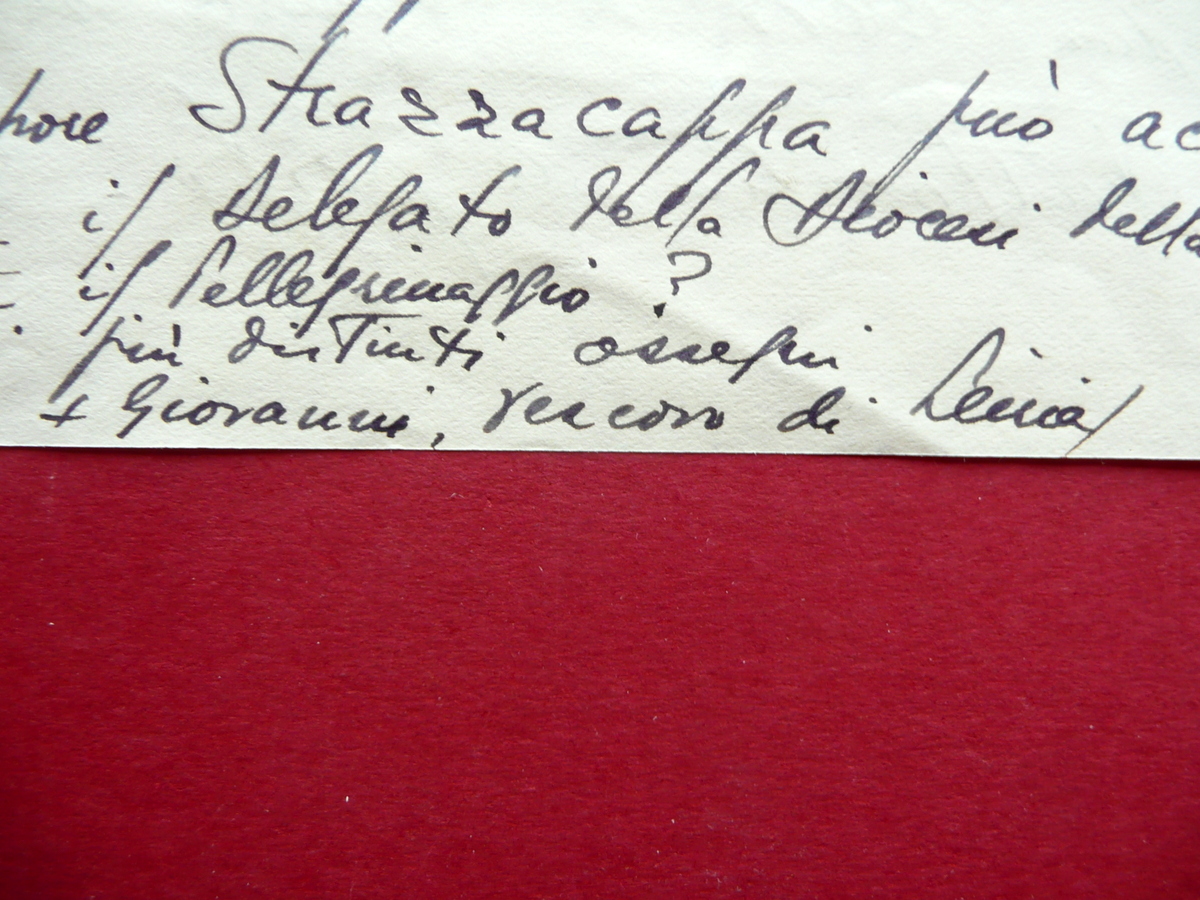 Strazzacappa può ac
il Delegato della Diocesi della
il Pellegrinaggio ?
più distinti ossequi
+ Giovanni, vescovo di